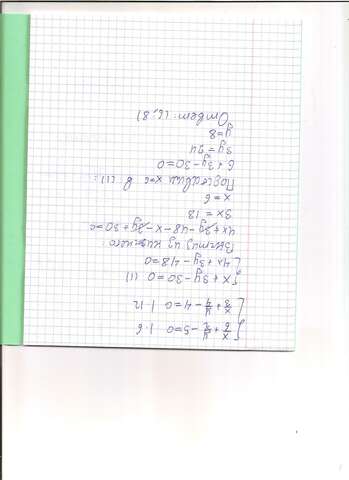 x/6 + y/2 - 5 = 0 | · 6
x/3 + y/4 - 4 = 0 | · 12
{ x + 3y - 30 = 0 (1)
4x + 3y - 48 = 0
из нижнего:
4x + 3y - 48 - x - 3y + 30 = 0
3x = 18
x = 6
Подставим x = 6 в (1):
6 + 3y - 30 = 0
3y = 24
y = 8
Ответ: (6; 8)